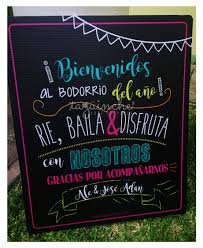 ¡Bienvenidos
AL BODORRIO del año!
RIE, BAILA & DISFRUTA
con NOSOTROS
GRACIAS POR ACOMPAÑARNOS
Ale & José Adán